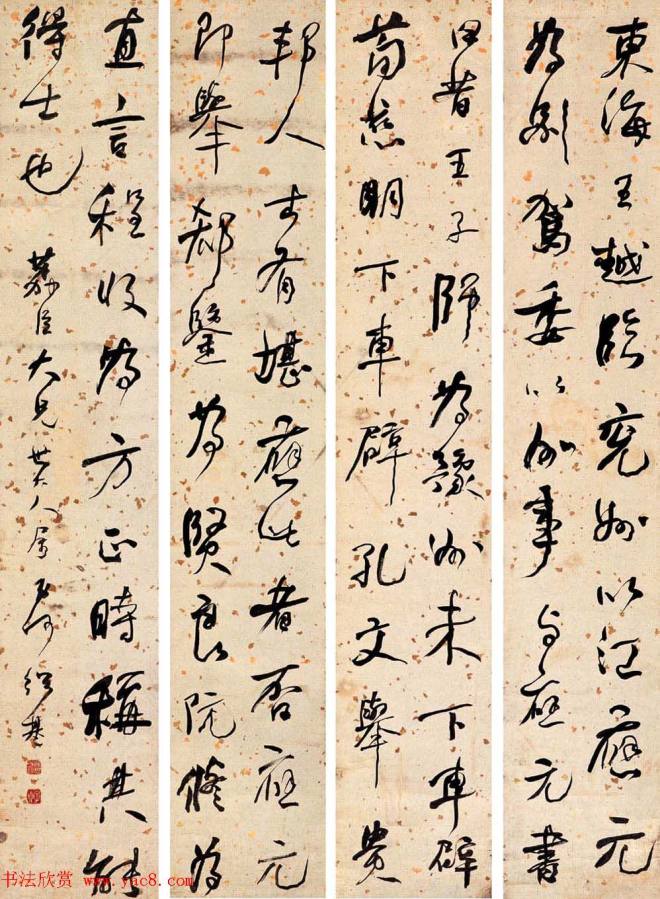 東海王越臨兗州以江應元
為別駕委以州事與應元書
曰昔王子師為豫州未下車辟
荀慈明下車辟孔文舉貴
邦人士有堪應此者否應元
即舉郗鑒為賢良阮脩為
直言程收為方正時稱其能
得士也
臣大兄世大人屬 何紹基
书法欣赏 www.yac8.com